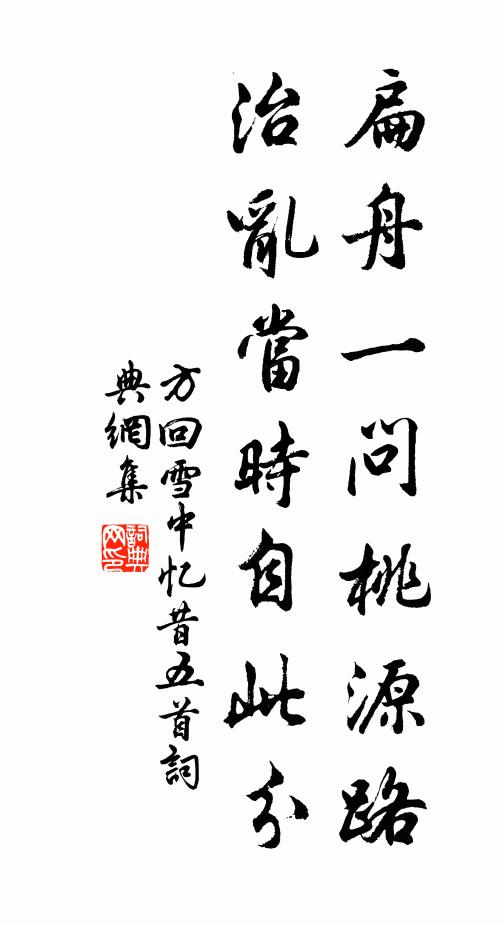 扁舟一問桃源路
治亂當時自此分
方回雪中忆昔五首詞
典網集
詞典
网印